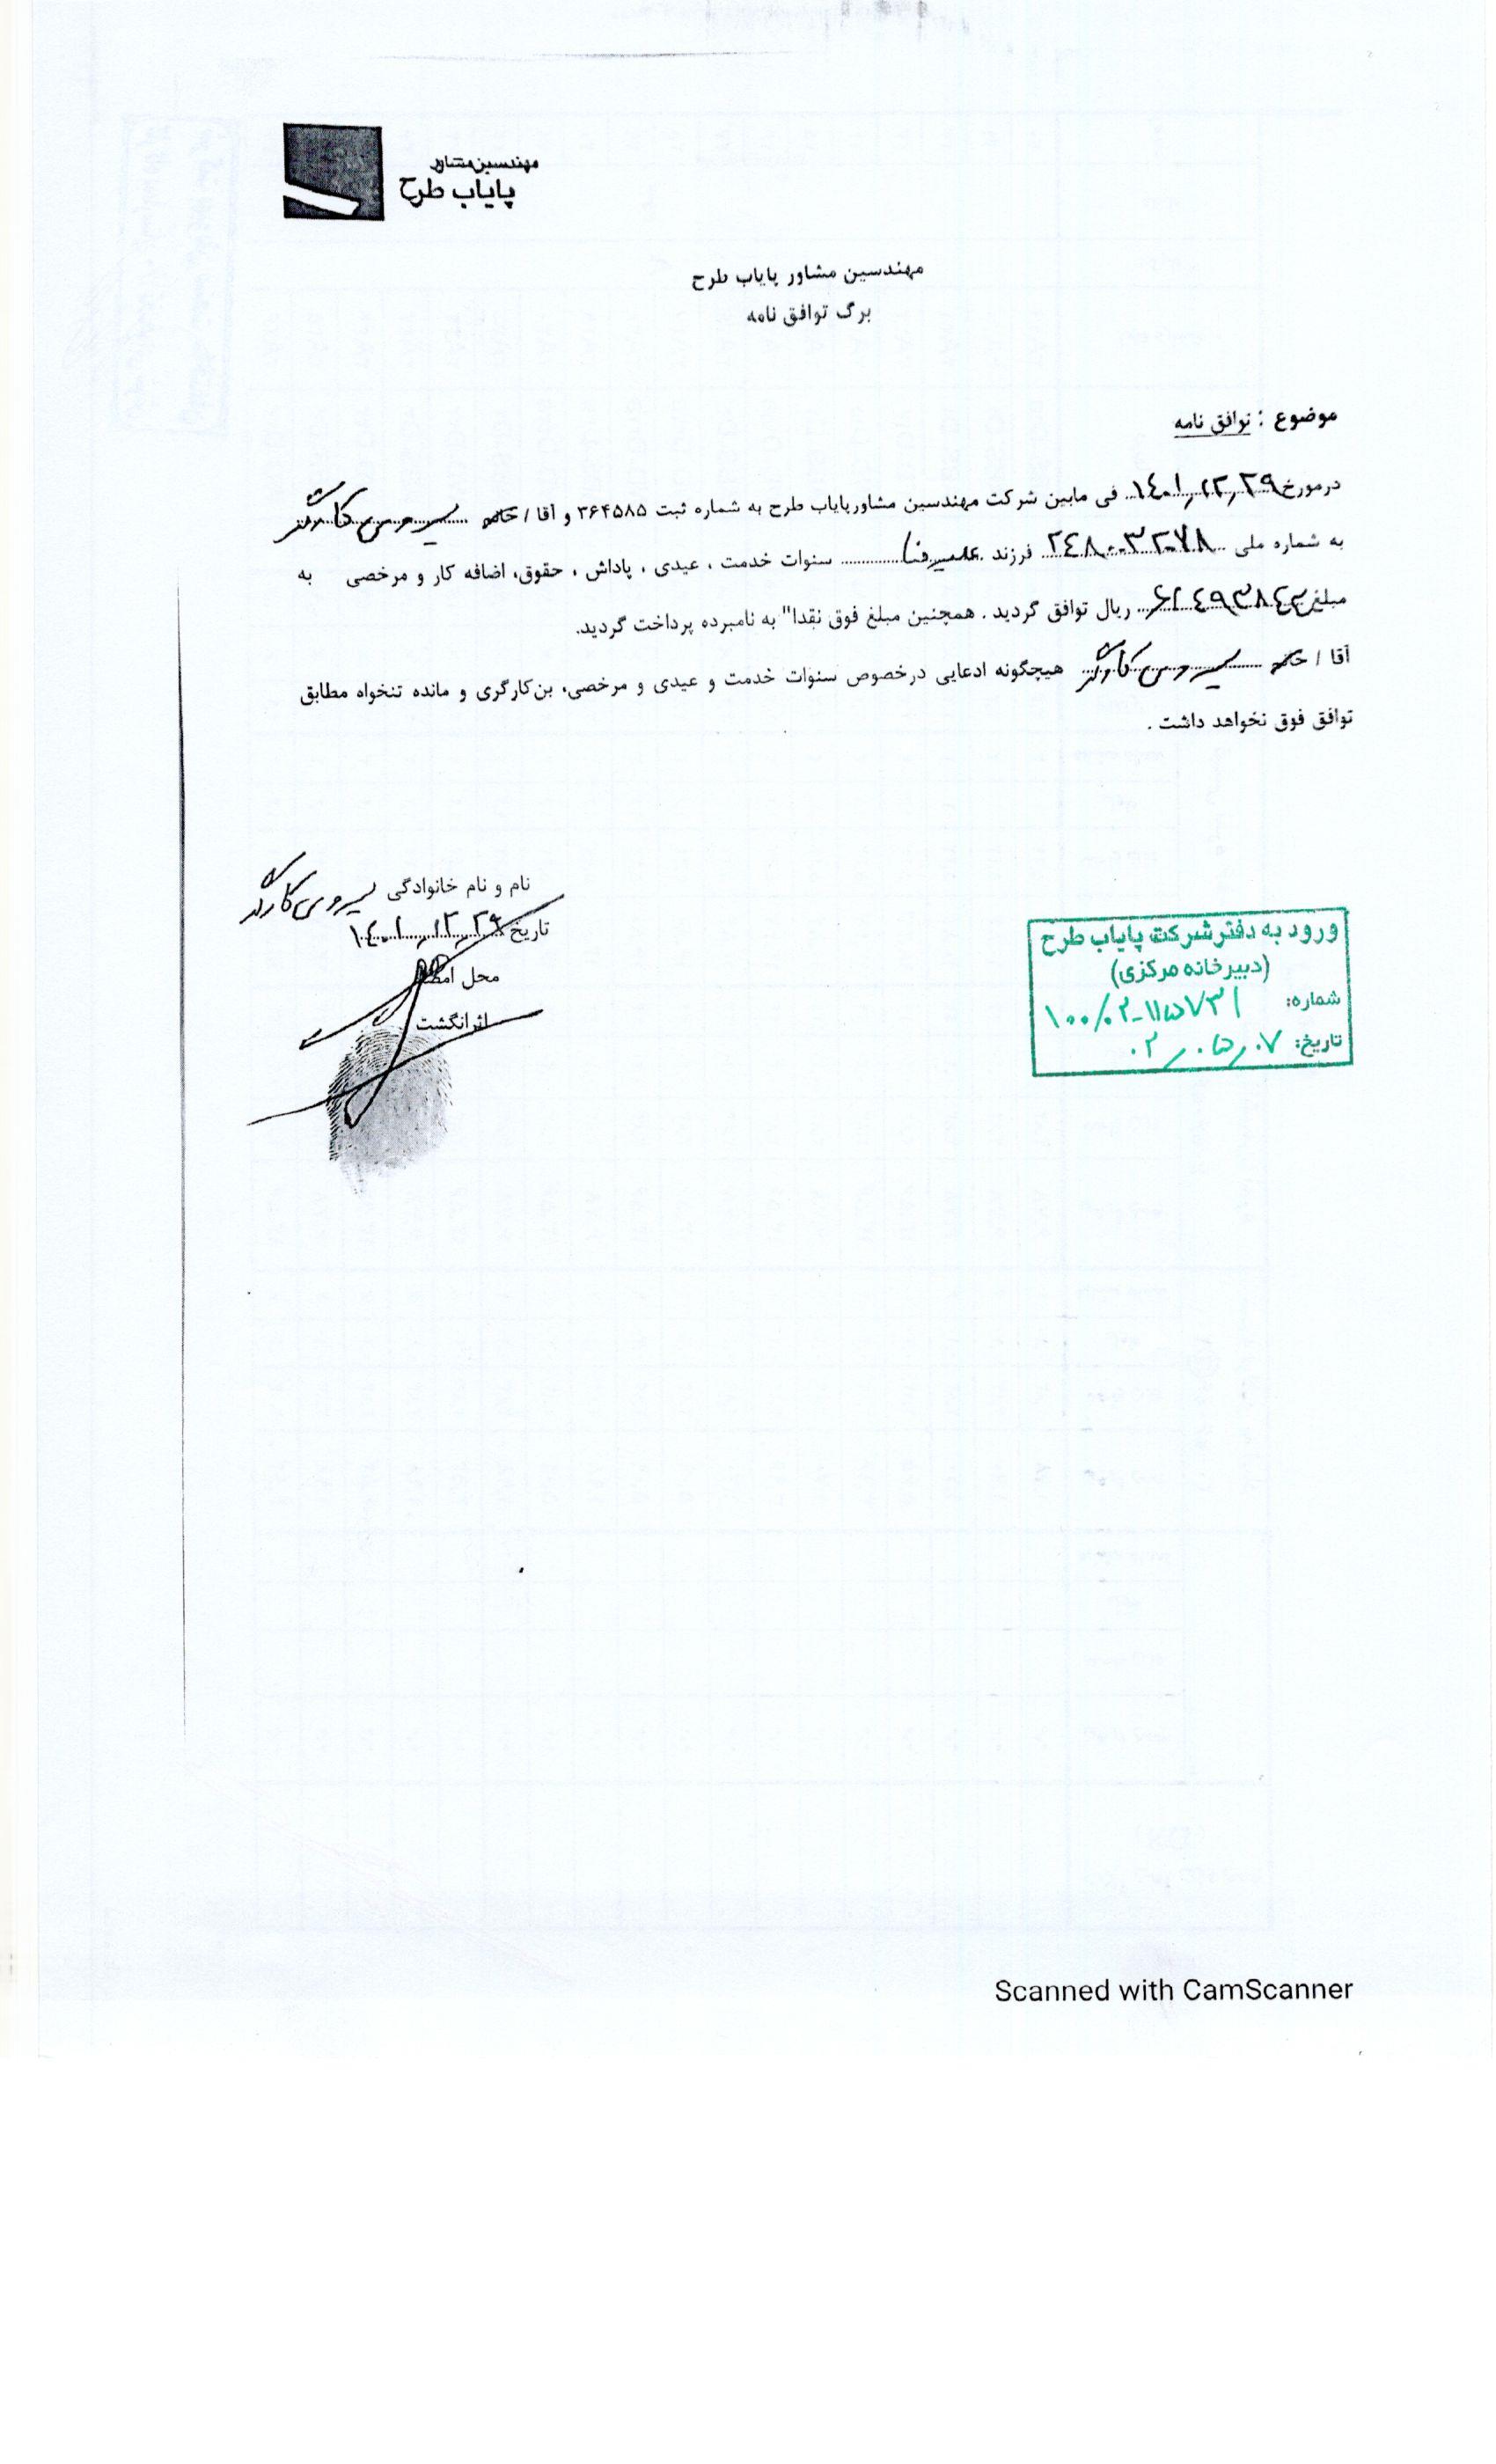 مهندسین مشاور
پایاب طرح
مهندسین مشاور پایاب طرح
برگ توافق نامه
موضوع : توافق نامه
درمورخ ۱۴۰۱,۱۲,۲۹ فی مابین شرکت مهندسین مشاورپایاب طرح به شماره ثبت ۳۶۴۵۸۵ و آقا / خانم سیروس کارگر
به شماره ملی ۲۴۸۰۰۳۲۰۷۸ فرزند علیرضا سنوات خدمت ، عیدی ، پاداش ، حقوق، اضافه کار و مرخصی به
مبلغ ریال توافق گردید . همچنین مبلغ فوق نقدا" به نامبرده پرداخت گردید.
آقا / خانم سیروس کارگر هیچگونه ادعایی درخصوص سنوات خدمت و عیدی و مرخصی، بن‌کارگری و مانده تنخواه مطابق
توافق فوق نخواهد داشت .
نام و نام خانوادگی سیروس کارگر
تاریخ ۱۴۰۱,۱۲,۲۹
محل امضا
اثرانگشت
ورود به دفتر شرکت پایاب طرح
(دبیرخانه مرکزی)
شماره: ۱۰۰/۰۲-۱۱۵۷۳۱
تاریخ: ۰۲,۰۵,۰۷
Scanned with CamScanner